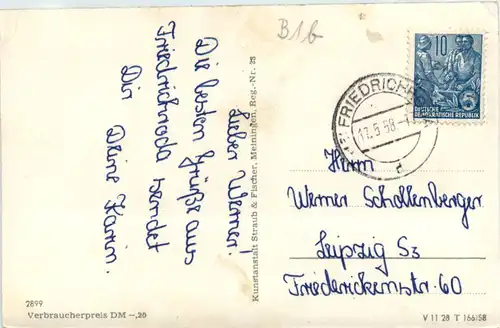 B1b
Lieber Werner!
Die besten Grüße aus
Friedrichroda sendet
Dir Deine Karin.
Kunstanstalt Straub & Fischer, Meiningen, Reg.-Nr. 23
10
5
DEUTSCHE
DEMOKRATISCHE REPUBLIK
17.5.58
d
Herrn
Werner Schollenberger
Leipzig S3
Friederickenstr. 60
2899
Verbraucherpreis DM -,20
V 11 28 T 166/58